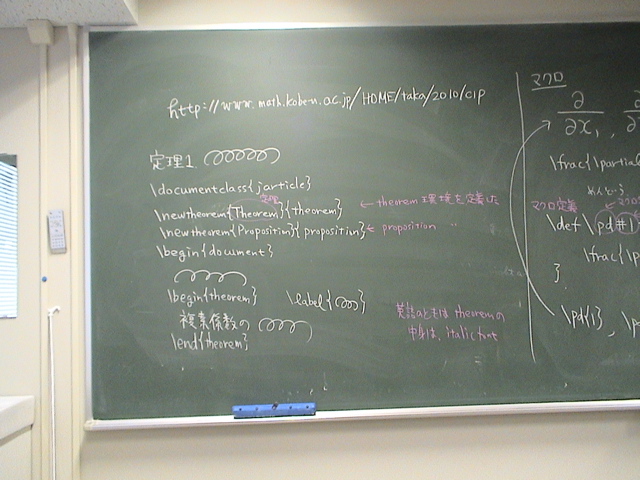 http://www.math.kobe-u.ac.jp/HOME/taka/2010/cip
定理1
\documentclass{jarticle}
定理
\newtheorem{Theorem}{theorem} ← theorem 環境を定義した
\newtheorem{Proposition}{proposition} ← proposition 〃
\begin{document}
\begin{theorem} \label{ }
複素係数の
\end{theorem}
英語のときは theoremの
中身は、italic font
マクロ
∂
∂x1 ,
\frac{\partial
めんどう
マクロ定義
\def \pd#1
\frac{\p
}
\pd{i}, \p